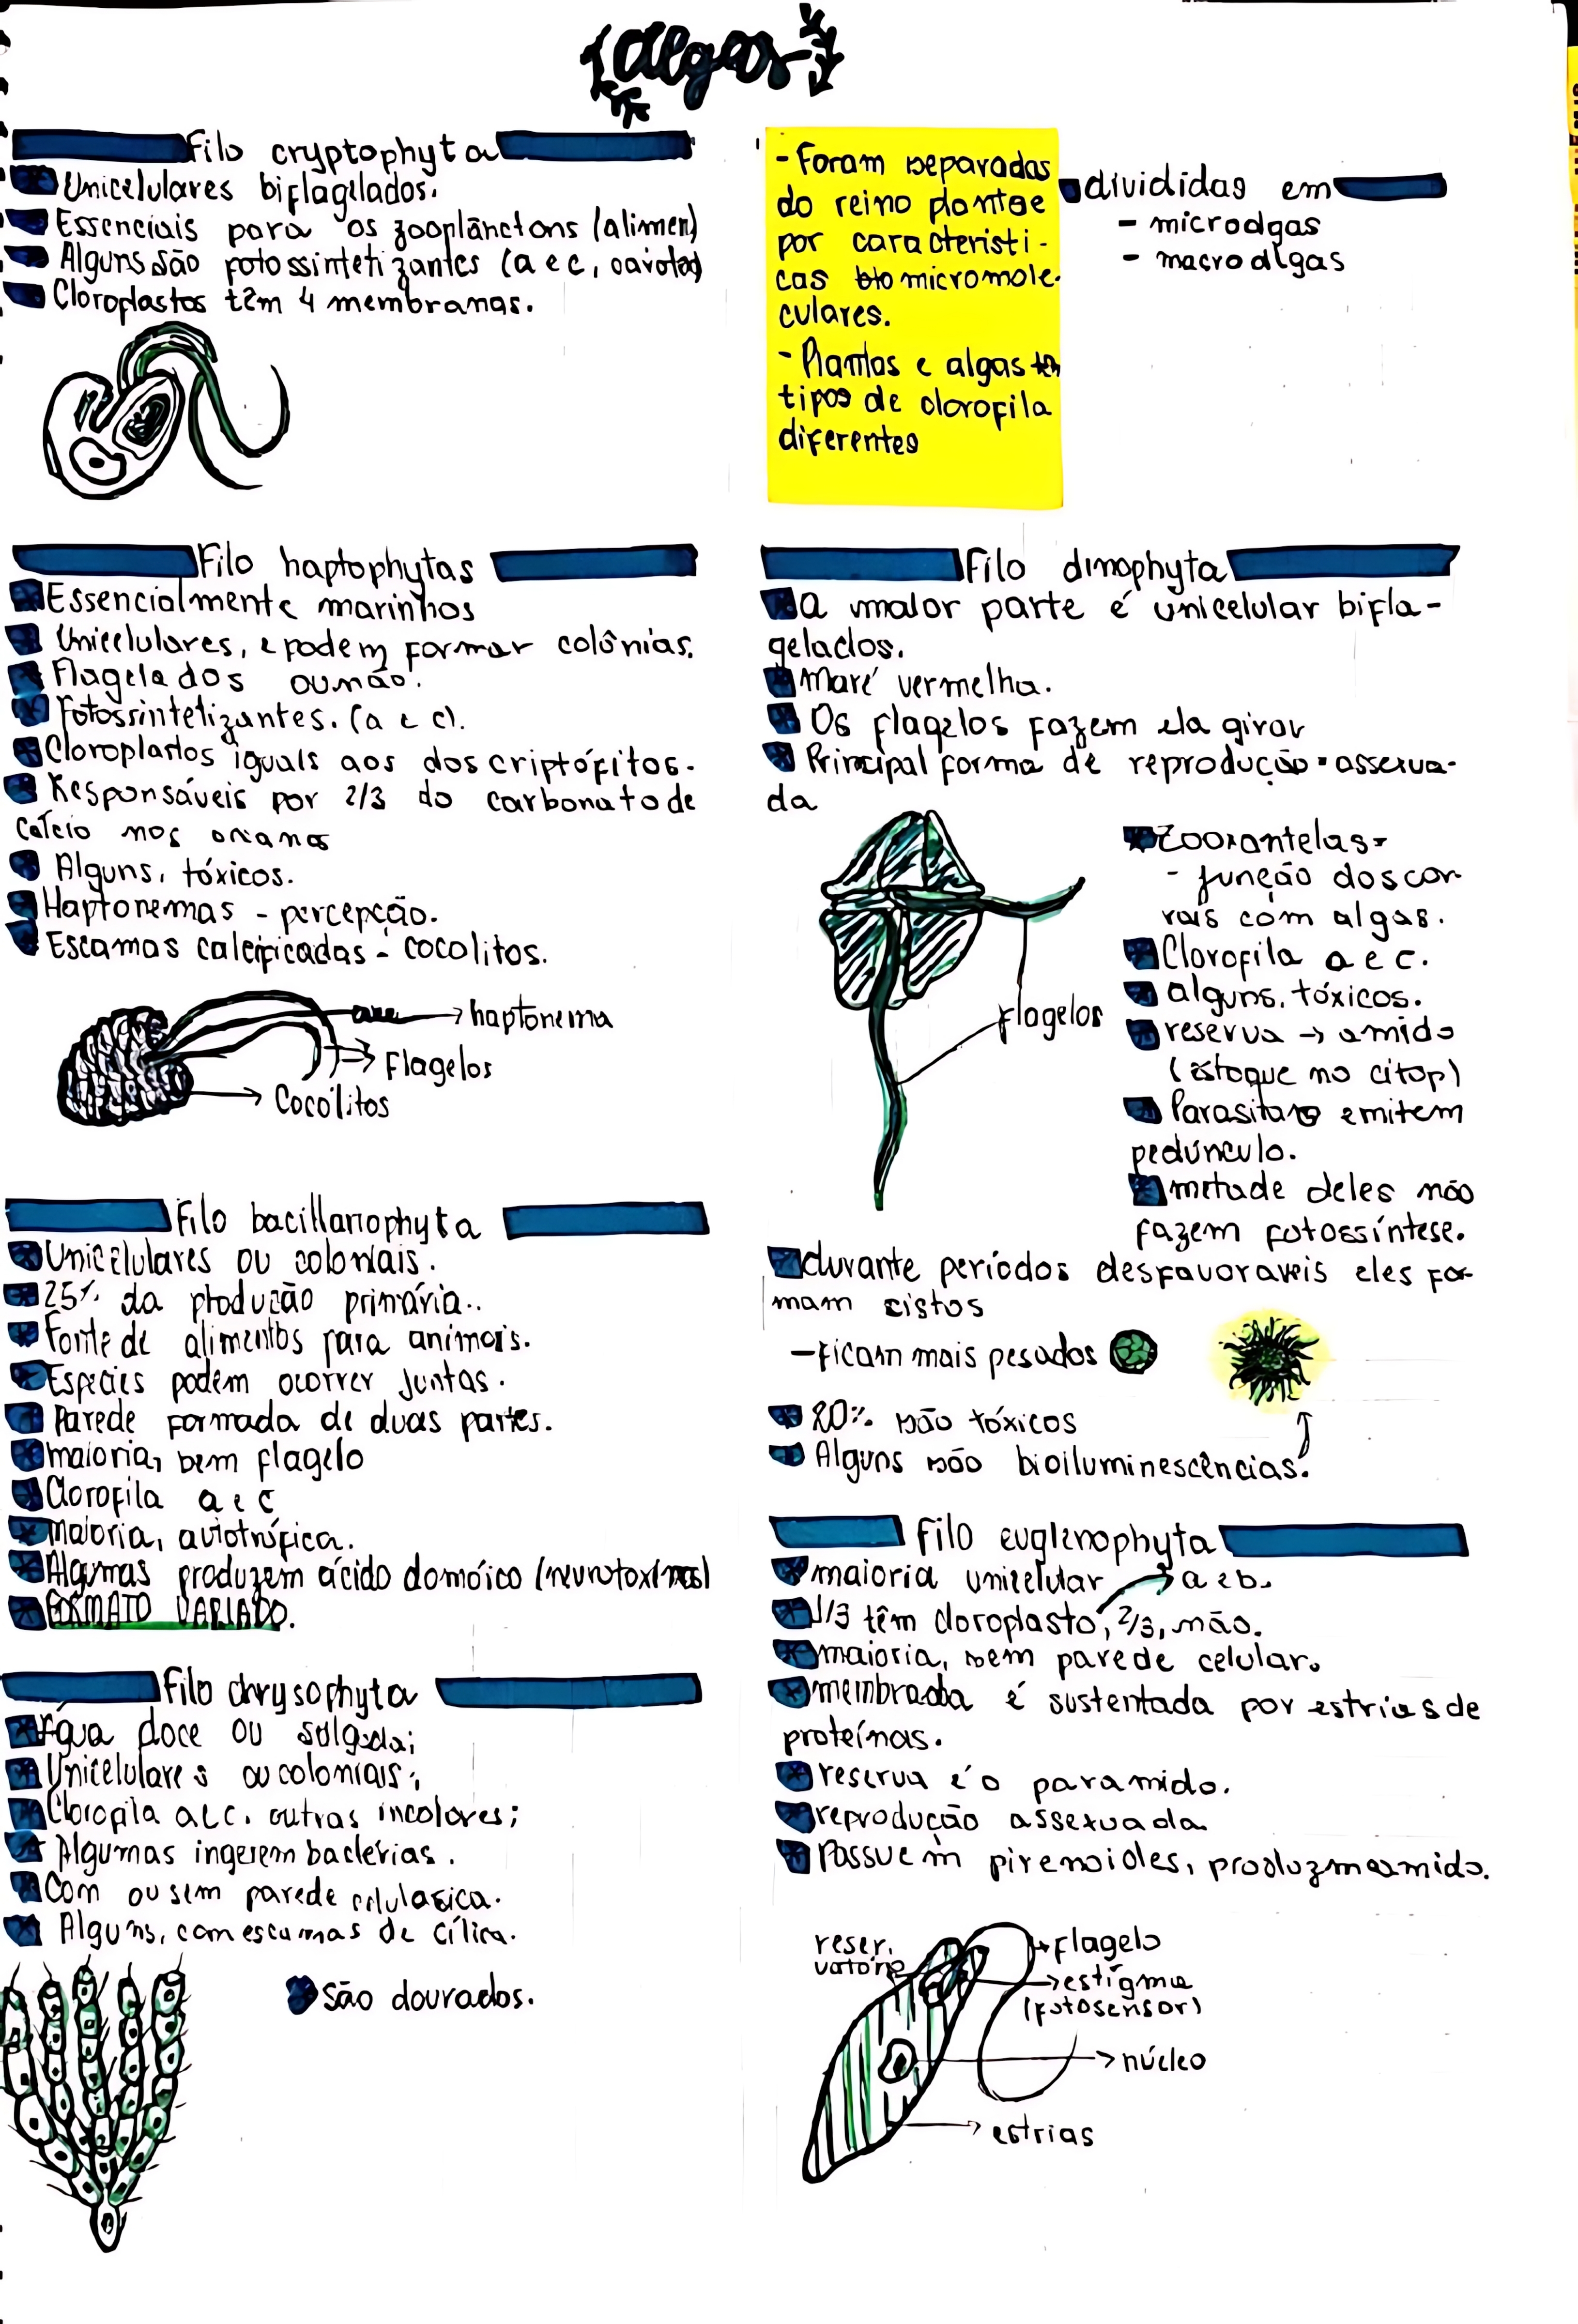 algas
Filo cryptophyta
Unicelulares biflagelados.
Essenciais para os zooplânctons (alimen)
Alguns são fotossintetizantes (a e c,
Cloroplastos têm 4 membranas.
- Foram separadas
do reino plantae
por característi-
cas micromole-
culares.
- Plantas e algas têm
tipos de clorofila
diferentes
divididas em
- microalgas
- macroalgas
Filo haptophytas
Essencialmente marinhos
Unicelulares, e podem formar colônias.
Flagelados ou não.
Fotossintetizantes. (a e c).
Cloroplastos iguais aos dos criptófitos.
Responsáveis por 2/3 do carbonato de
calcio nos
Alguns, tóxicos.
Haptonemas - percepção.
Escamas calcificadas - cocolitos.
haptonema
Flagelos
Cocolitos
Filo dinophyta
a maior parte é unicelular bifla-
gelados.
Maré vermelha.
Os flagelos fazem ela girar
Principal forma de reprodução = assexua-
da
Flagelos
Zooxantelas =
- junção dos co-
rais com algas.
Clorofila a e c.
alguns, tóxicos.
reserva → amido
(estoque no citop)
Parasitas emitem
pedúnculo.
metade deles não
fazem fotossíntese.
durante períodos desfavoraveis eles for-
mam cistos
- ficam mais pesados
20% são tóxicos
Alguns são bioiluminescências.
Filo bacillariophyta
Unicelulares ou coloniais.
25% da produção primária..
Fonte de alimentos para animais.
Espécies podem ocorrer juntas.
Parede formada de duas partes.
maioria, sem flagelo
Clorofila a e c
maioria, autotrófica.
Algumas produzem ácido domóico (neurotoxinas)
FORMATO VARIADO.
Filo chrysophyta
Água doce ou salgada;
Unicelulares ou coloniais;
Clorofila a e c. outras incolores;
Algumas ingerem bactérias.
Com ou sem parede celulasica.
Alguns, com escamas de cílica.
São dourados.
Filo euglenophyta
maioria unicelular → a e b.
1/3 têm cloroplasto, 2/3, não.
maioria, sem parede celular.
é sustentada por estrias de
proteínas.
reserva é o paramido.
reprodução assexuada
Possuem pirenoides, produzem amido.
reser.
vatório
Flagelo
estigma
(fotosensor)
núcleo
estrias